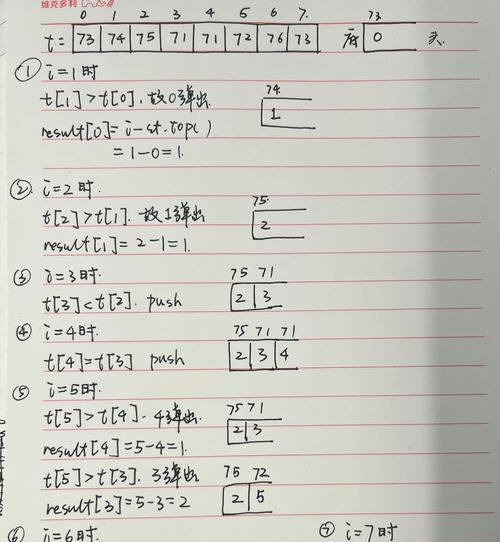 维克多利
0 1 2 3 4 5 6 7.
t= 73 74 75 71 71 72 76 73
73.
底 0 头.
① i=1时
t[1]>t[0]. 故0弹出.
74.
1
result[0]= i-st.top()
=1-0=1.
② i=2时
t[2]>t[1]. 故1弹出
75.
2
result[1]= 2-1=1.
③ i=3时.
t[3]<t[2]. push
75 71
2 3
④ i=4时.
t[4]=t[3] push
75 71 71
2 3 4
⑤ i=5时.
t[5]>t[4]. 4弹出.
75 71
2 3
result[4]=5-4=1.
t[5]>t[3]. 3弹出.
75 72
2 5
result[3]=5-3=2
⑥ i=6时 ⑦ i=7时